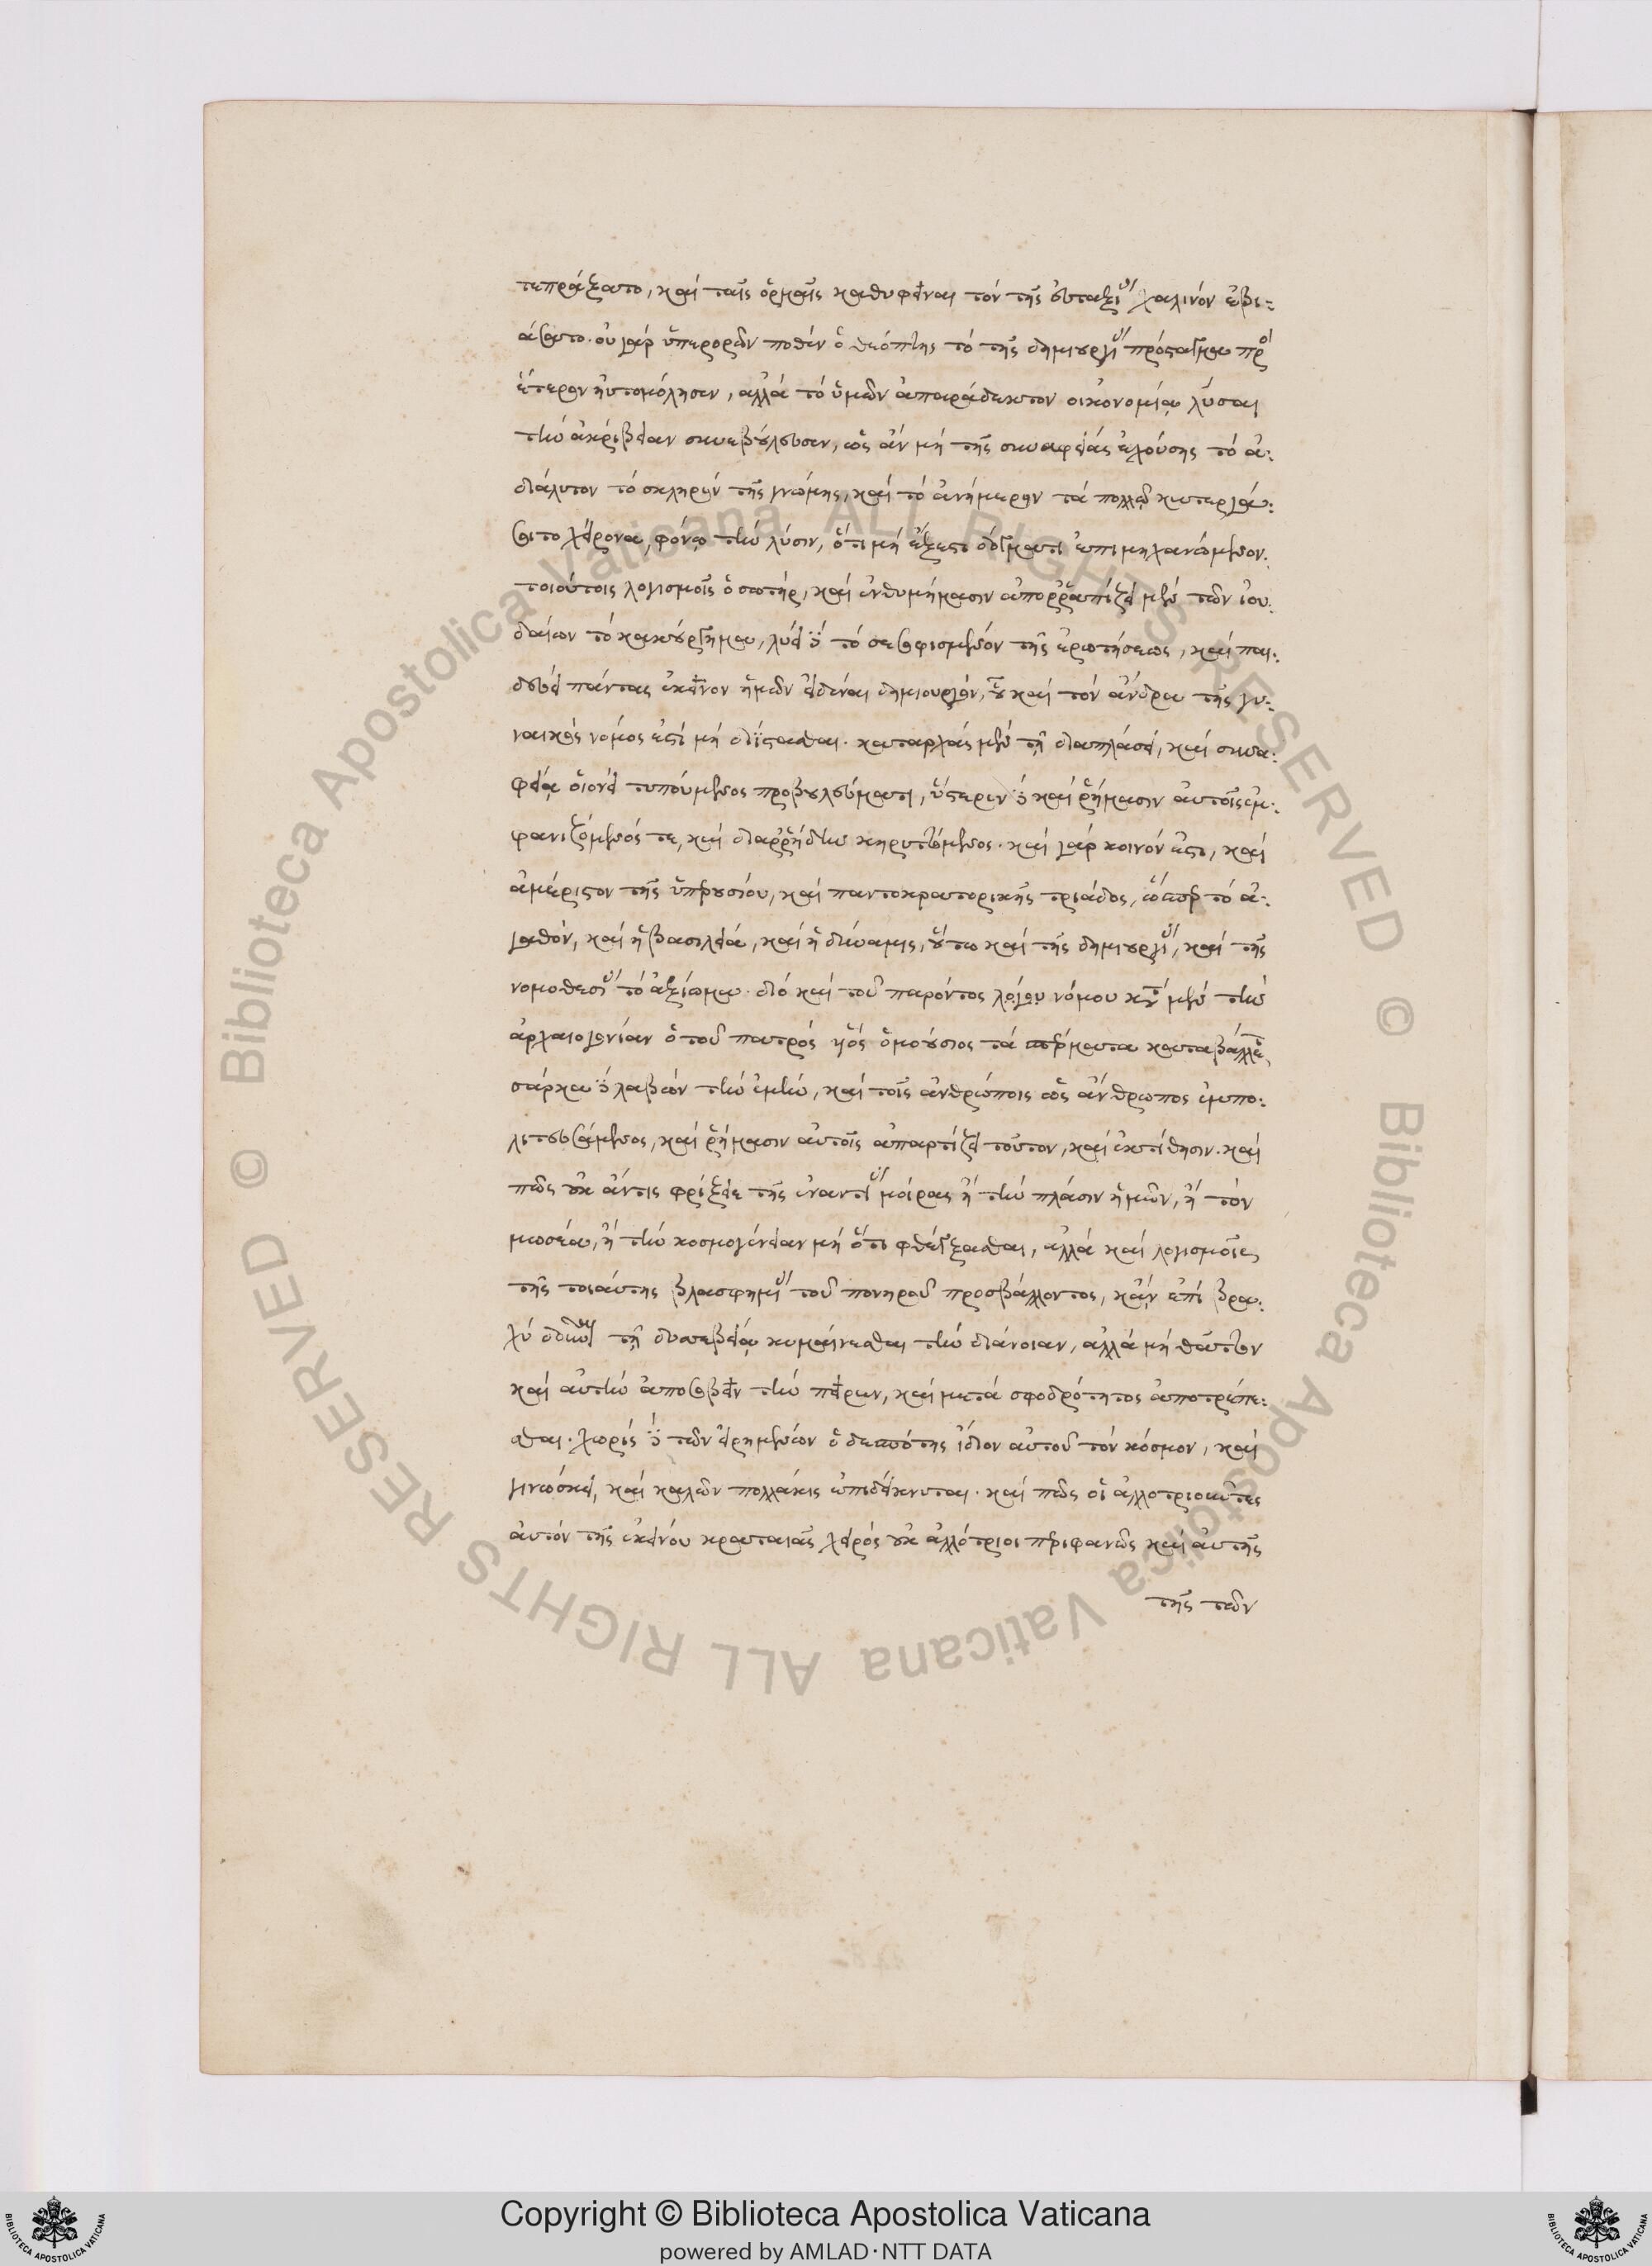 τεπράξατο, καὶ ταῖς ὁρμαῖς καθυφεῖναι τὸν τῆς εὐταξίας χαλινὸν ἐβι-
άσατο. οὐ γὰρ ὑπερορῶν ποθὲν ὁ θεόπτης τὸ τῆς δημιουργίας πρόσταγμα πρὸς
ἕτερον ηὐτομόλησεν, ἀλλὰ τὸ ὑμῶν ἀπαράδεκτον οἰκονομίᾳ λῦσαι
τὴν ἀκρίβειαν συνεβούλευσεν, ὡς ἂν μὴ τῆς συναφείας ἐχούσης τὸ ἀ-
διάλυτον τὸ σκληρὸν τῆς γνώμης, καὶ τὸ ἀνήμερον τὰ πολλῷ κατεργά-
σαιτο χείρονα, φόνῳ τὴν λύσιν, ὅτι μὴ ἔξεστι δόγματι ἐπιμηχανώμενον.
τοιούτοις λογισμοῖς ὁ σωτήρ, καὶ ἐνθυμήμασιν ἀπορραπίζει μὲν τῶν ἰου-
δαίων τὸ κακούργημα, λύει δὲ τὸ σεσοφισμένον τῆς ἐρωτήσεως, καὶ παι-
δεύει πάντας ἐκεῖνον ἡμῶν εἰδέναι δημιουργόν, οὗ καὶ τὸν ἄνδρα τῆς γυ-
ναικὸς νόμος ἐστὶ μὴ διΐστασθαι. καταρχὰς μὲν τῇ διαπλάσει, καὶ συνα-
φείᾳ οἱονεὶ τυπούμενος προβουλεύματι, ὕστερον δὲ καὶ ῥήμασιν αὐτοῖς ἐμ-
φανιζόμενός τε, καὶ διαρρήδην κηρυττόμενος. καὶ γὰρ κοινόν ἐστι, καὶ
ἀμέριστον τῆς ὑπερουσίου, καὶ παντοκρατορικῆς τριάδος, ὥσπερ τὸ ἀ-
γαθόν, καὶ ἡ βασιλεία, καὶ ἡ δύναμις, οὕτω καὶ τῆς δημιουργίας, καὶ τῆς
νομοθεσίας τὸ ἀξίωμα. διὸ καὶ τοῦ παρόντος λόγου νόμου κατὰ μὲν τὴν
ἀρχαιογονίαν ὁ τοῦ πατρὸς υἱὸς ὁμοούσιος τὰ σπέρματα καταβάλλει,
σάρκα δὲ λαβὼν τὴν ἐμὴν, καὶ τοῖς ἀνθρώποις ὡς ἄνθρωπος ἐμπο-
λιτευσάμενος, καὶ ῥήμασιν αὐτοῖς ἀπαρτίζει τοῦτον, καὶ ἐκτίθησιν. καὶ
πῶς οὐκ ἄν τις φρίξειε τῆς ἐναντίας μοίρας ἢ τὴν πλάσιν ἡμῶν, ἢ τὸν
μωσέα, ἢ τὴν κοσμογένειαν μὴ ὅτι φθέγξασθαι, ἀλλὰ καὶ λογισμοῖς
τῆς τοιαύτης βλασφημίας τοῦ πονηροῦ προσβάλλοντος, κἂν ἐπὶ βρα-
χὺ τῇ δυσσεβείᾳ κυμαίνεσθαι τὴν διάνοιαν, ἀλλὰ μὴ θᾶττον
καὶ αὐτὴν ἀποσοβεῖν τὴν πεῖραν, καὶ μετὰ σφοδρότητος ἀποτρέπε-
σθαι. χωρὶς δὲ τῶν εἰρημένων ὁ δεσπότης ἴδιον αὐτοῦ τὸν κόσμον, καὶ
γινώσκει, καὶ καλῶν πολλάκις ἐπιδείκνυται. καὶ πῶς οἱ ἀλλοτριοῦντες
αὐτὸν τῆς ἐκείνου κραταιᾶς χειρὸς οὐκ ἀλλότριοι περιφανῶς καὶ αὐτῆς
τῆς τῶν
© Biblioteca Apostolica Vaticana ALL RIGHTS RESERVED
© Biblioteca Apostolica Vaticana ALL RIGHTS RESERVED
Copyright © Biblioteca Apostolica Vaticana
powered by AMLAD·NTT DATA
BIBLIOTECA APOSTOLICA VATICANA
BIBLIOTECA APOSTOLICA VATICANA